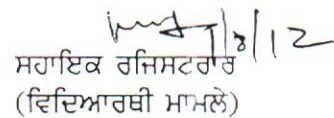 7/8/12
ਸਹਾਇਕ ਰਜਿਸਟਰਾਰ
(ਵਿਦਿਆਰਥੀ ਮਾਮਲੇ)